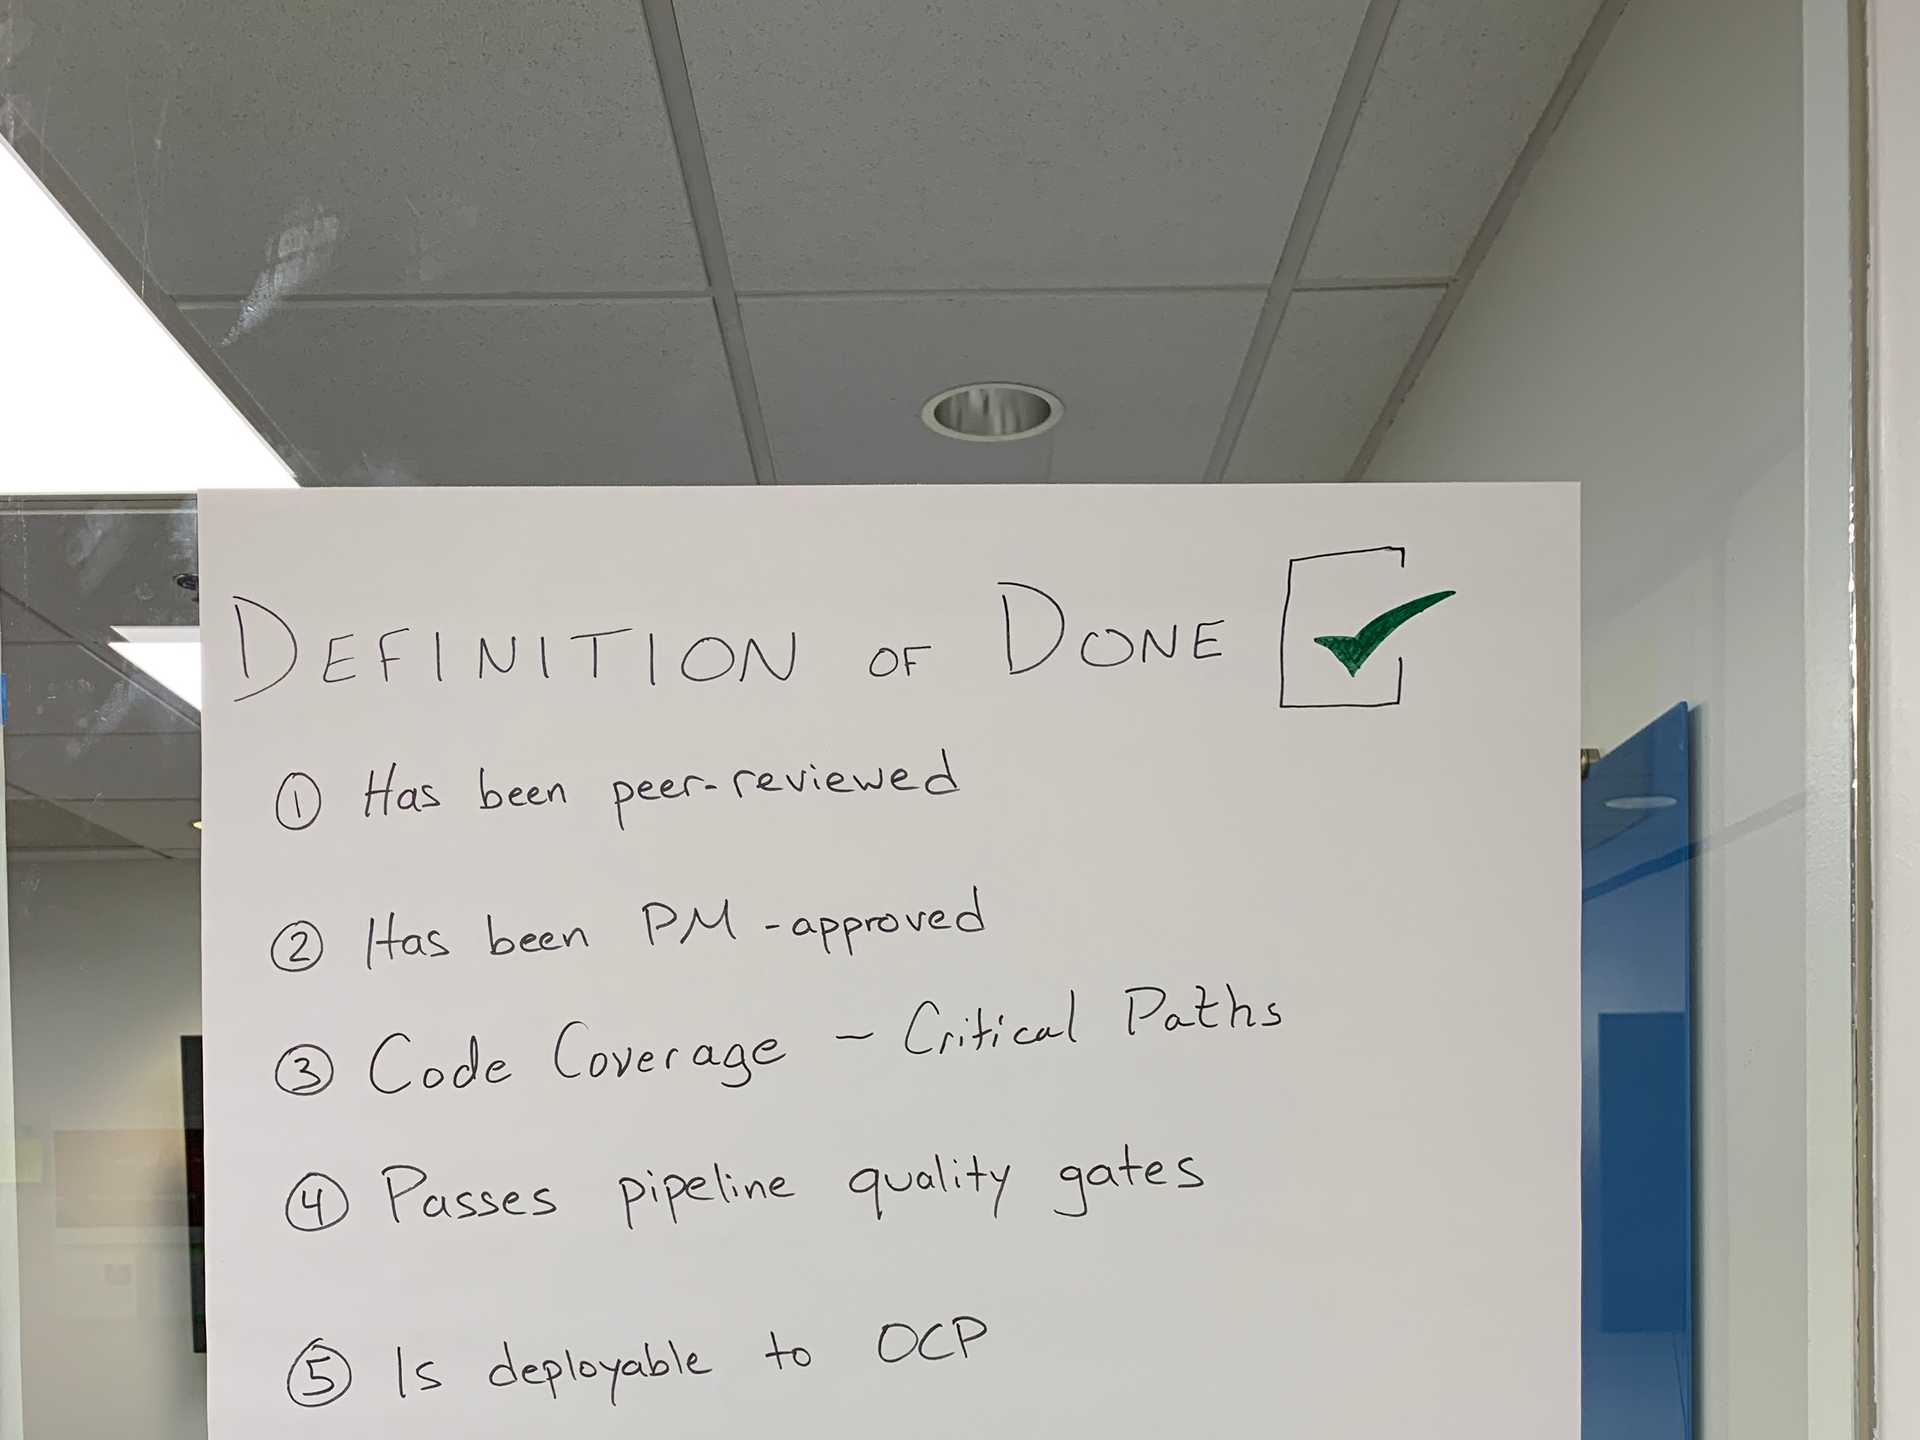 DEFINITION OF DONE
① Has been peer-reviewed
② Has been PM-approved
③ Code Coverage - Critical Paths
④ Passes pipeline quality gates
⑤ Is deployable to OCP